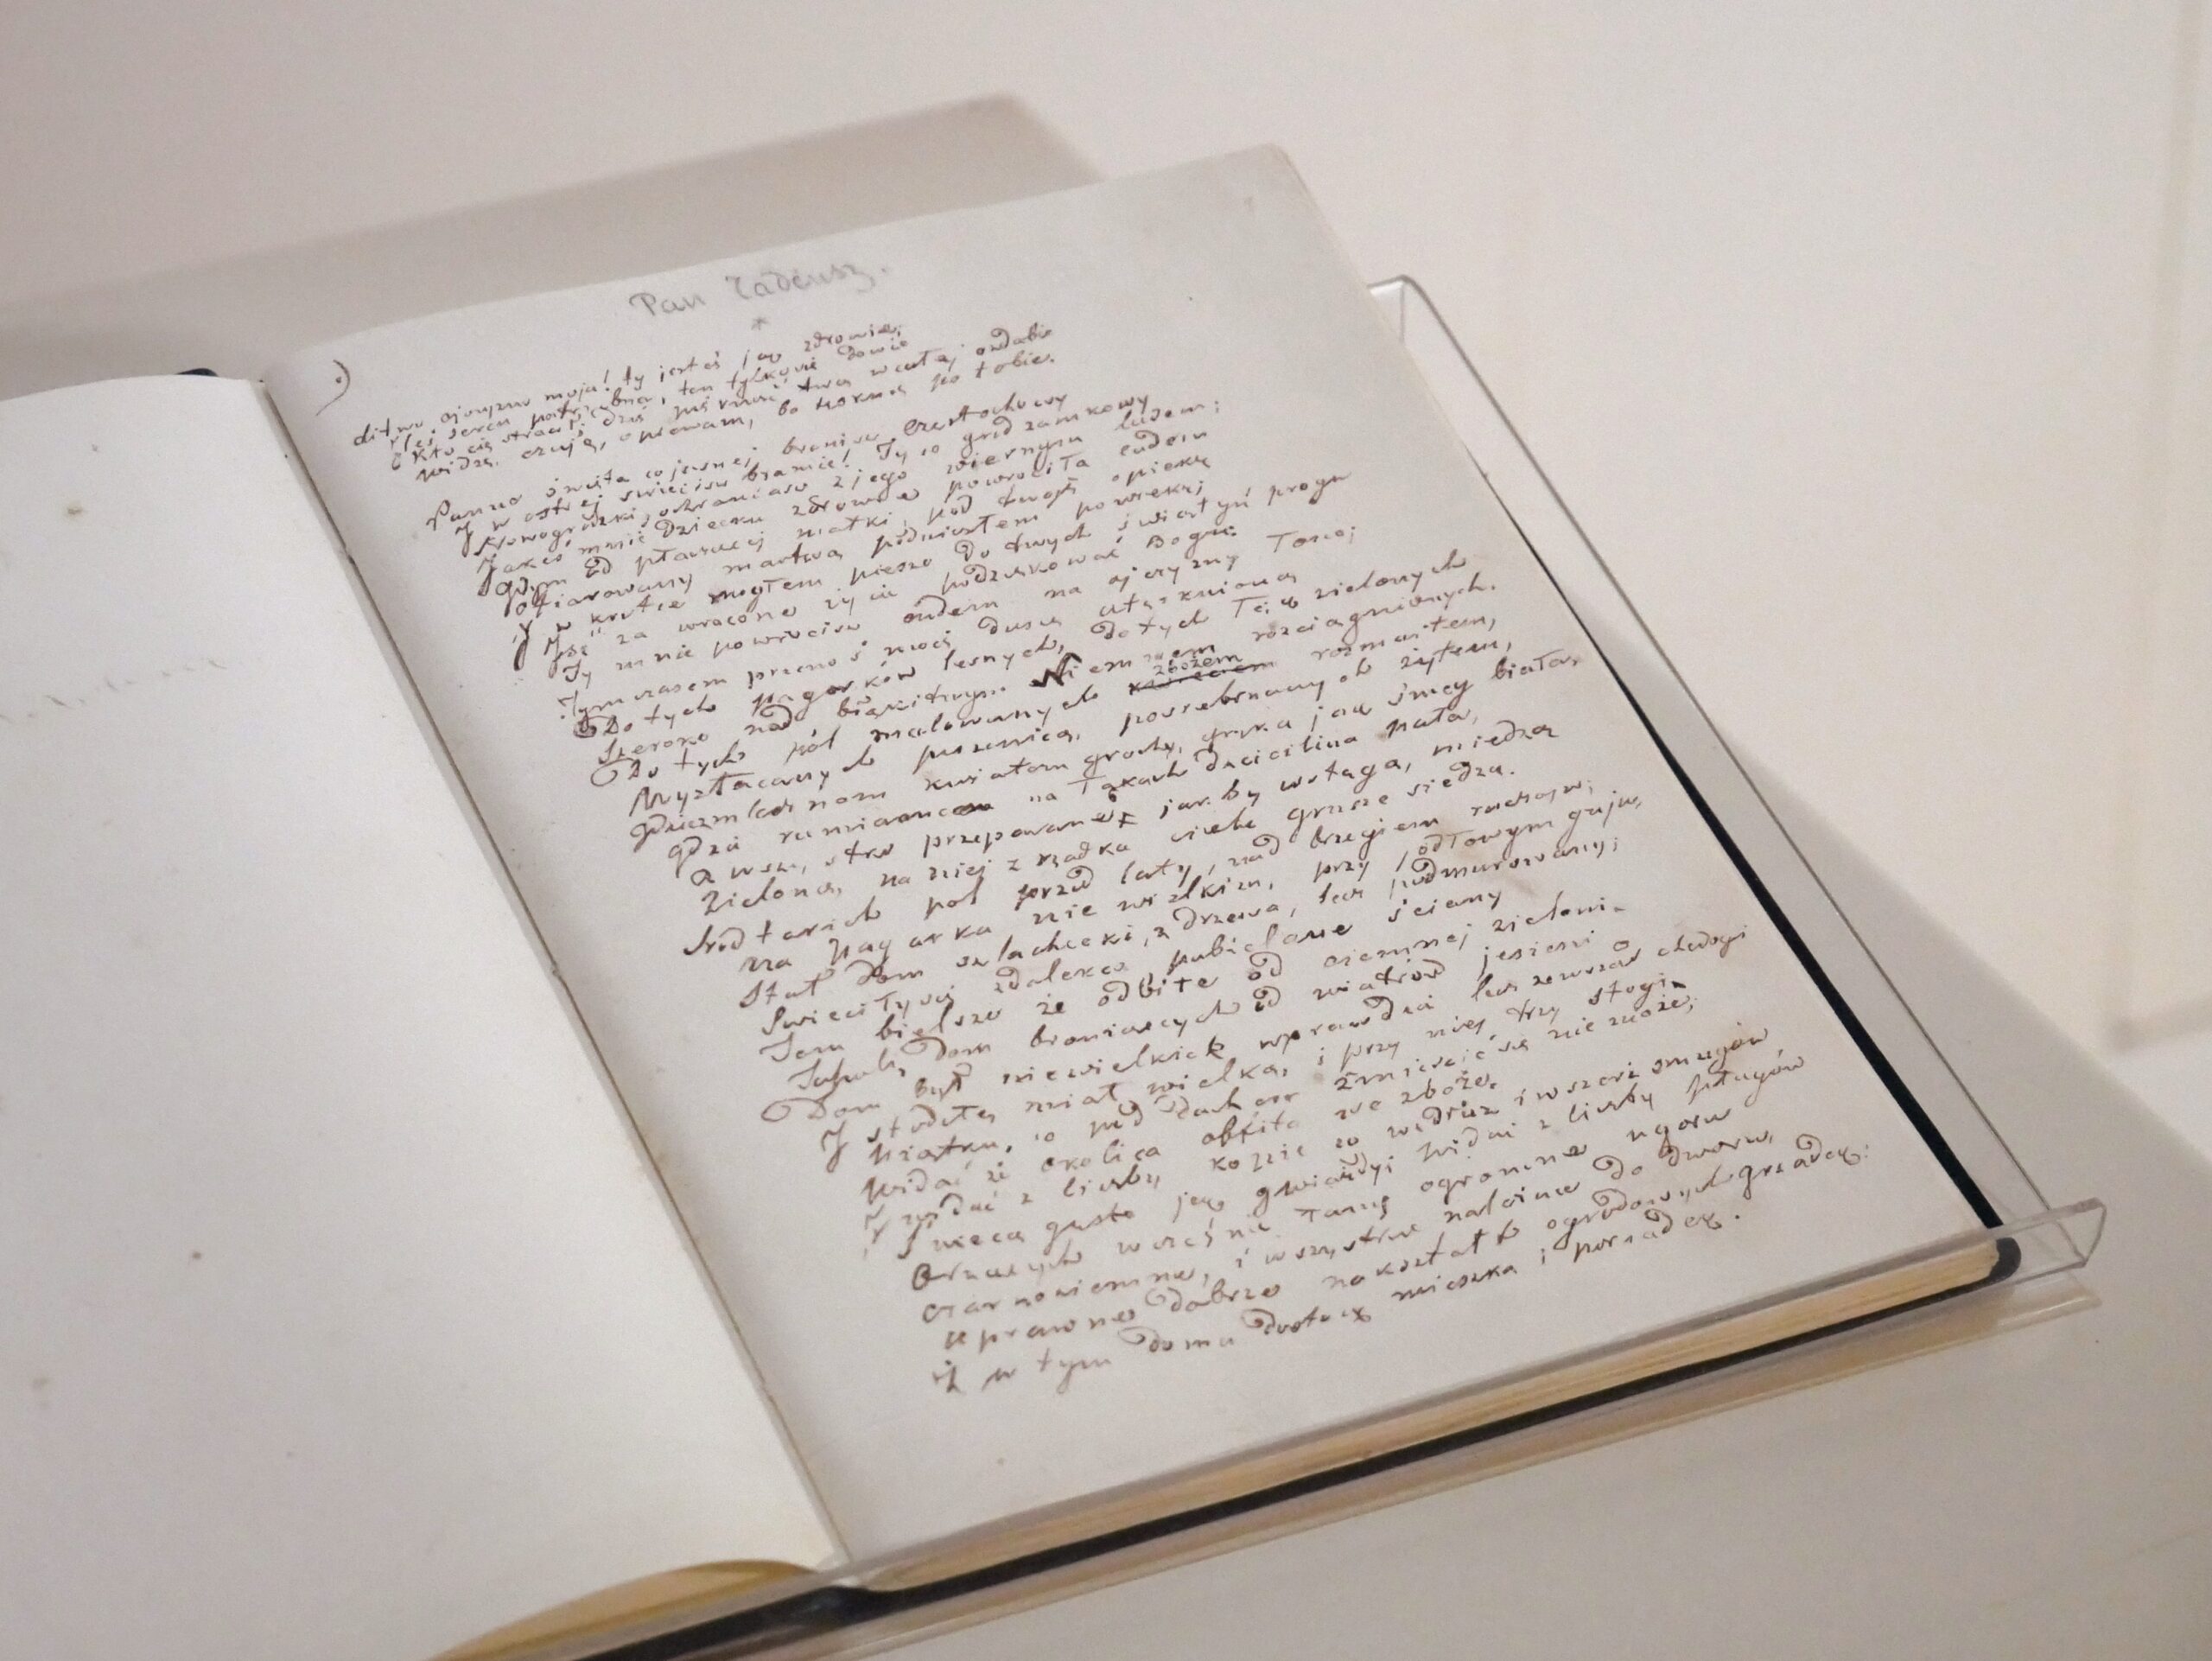 Pan Tadeusz.
*
Litwo ojczyzno moja! ty jesteś jak zdrowie,
Ileś cenn potrzebna, ten tylko się dowie
Kto cię stracił; dziś już twą w całej ozdobie
Widzę, czuję, opiewam, bo tęsknię po tobie.
Panno święta co jasnej bronisz Częstochowy
I w ostrej świecisz bramie! Ty co gród zamkowy
Nowogródzki ochraniasz z jego wiernym ludem;
Jakeś mnie dziecku zdrowie powróciła cudem
Gdym od płaczącej matki, pod twoją opiekę
Ofiarowany martwą podniosłem powiekę;
I w krutce mogłem pieszo do twych świątyń progu
Iść za wrócone życie podziękować Bogu:
Ty mnie powrócisz cudem na ojczyzny łono;
Tymczasem przenoś moję duszę utęsknioną
Do tych pagórków leśnych, do tych łąk zielonych
Szeroko nad błękitnym Niemnem rozciągnionych.
Do tych pól malowanych kwieciem zbożem rozmaitem,
Wyzłacanych pszenicą, posrebrzanych żytem,
Gdzie kwiatem grochy, gryka jak śnieg biała,
Gdzie rumieńcem na łąkach dzięcielina pała,
A wszystko przepasane jakby wstęgą, miedzą
Zieloną, na niej z rzadka ciche grusze siedzą.
Śród takich pol przed laty, nad brzegiem ruczaju,
Na pagórku nie wielkim, przy gaju,
Stał dom szlachecki, z drzewa, lecz podmurowany;
Swieciły się zdaleka pobielane ściany
Tem bielsze że odbite od ciemnej zieleni
Topoli, dom broniących od wiatrów jesieni
Dom był niewielki wprawdzie lecz zewsząd chędogi
I stodołę miał wielką, i przy niej trzy stogi
Użątku, co pod dachem zmieścić się nie może;
Widać że okolica obfita we zboże.
I widać z liczby kopic co wzdłuż i wszerz smugów
Świecą gęsto jak gwiazdy; widać z liczby pługów
Orzących wcześnie łany ogromne ugoru
Czarnoziemne, i wszystkie należne do dworu,
Uprawne dobrze nakształt ogrodowych grządek:
Iż w tym domu dostatek mieszka i porządek.